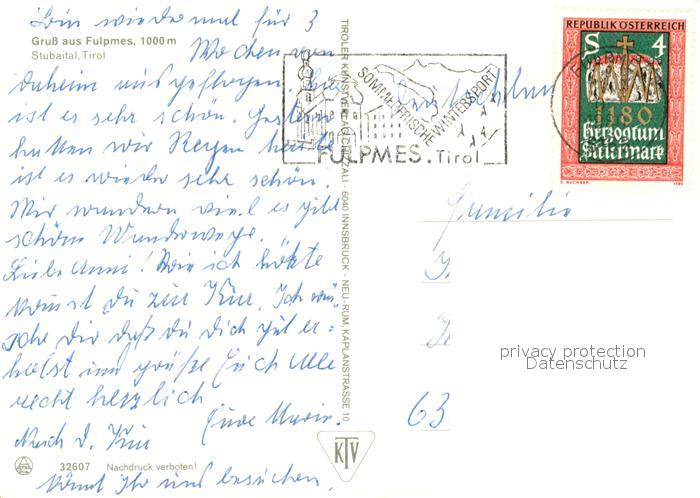 Bin wieder mal für 3
Gruß aus Fulpmes, 1000 m
Stubaital, Tirol
Wochen von
daheim ausgeflogen. Hier
ist es sehr schön. Gestern
hatten wir Regen heute
ist es wieder sehr schön.
Wir wandern viel es gibt
schöne Wanderwege.
Liebe Anni! Wie ich hörte
kommst du zur Kur. Ich wün
sche dir daß du dich gut er-
holst und grüße Euch Alle
recht herzlich
Eure Maria.
Nach d. Kur
könnt Ihr uns besuchen.
32607 Nachdruck verboten!
TIROLER KUNSTVERLAG CHIZZALI · 6040 INNSBRUCK - NEU-RUM, KAPLANSTRASSE 10
KTV
SOMMERFRISCHE WINTERSPORT
FULPMES. Tirol
REPUBLIK ÖSTERREICH
S 4
1180
Herzogtum
Steiermark
1980
Familie
63
privacy protection
Datenschutz